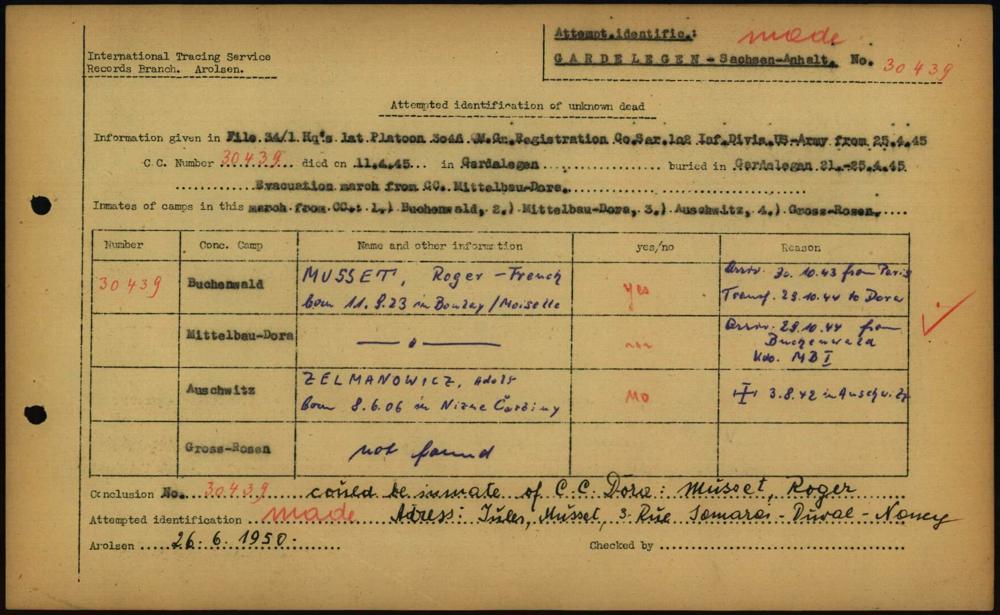 International Tracing Service
Records Branch. Arolsen.
Attempt.identific.: made
GARDELEGEN - Sachsen-Anhalt. No. 30439
Attempted identification of unknown dead
Information given in File 34/1 Hq's 1at Platoon 3046 QM.Gr.Registration Co.Ser.102 Inf.Divis.US-Army from 25.4.45
C.C. Number 30439 died on 11.4.45 in Gardelegen buried in Gardelegen 21.-25.4.45
Evacuation march from CC. Mittelbau-Dora.
Inmates of camps in this march from CC.: 1.) Buchenwald, 2.) Mittelbau-Dora, 3.) Auschwitz, 4.) Gross-Rosen.
Number Conc. Camp Name and other information yes/no Reason
30439 Buchenwald MUSSET, Roger - French yes Arriv. 30.10.43 from Paris
born 11.9.23 in Bouzay/Moiselle Transf. 29.10.44 to Dora
Mittelbau-Dora — " — -"- Arriv. 29.10.44 from
Buchenwald
Kdo. MB I
Auschwitz ZELMANOWICZ, Adolf no 3.8.42 in Auschwitz
born 8.6.06 in Nizne Čabiny
Gross-Rosen not found
Conclusion No. 30439 could be inmate of C.C. Dora: Musset, Roger
Attempted identification made Adress: Jules, Musset, 3 Rue Duval - Nancy
Arolsen 26.6.1950. Checked by